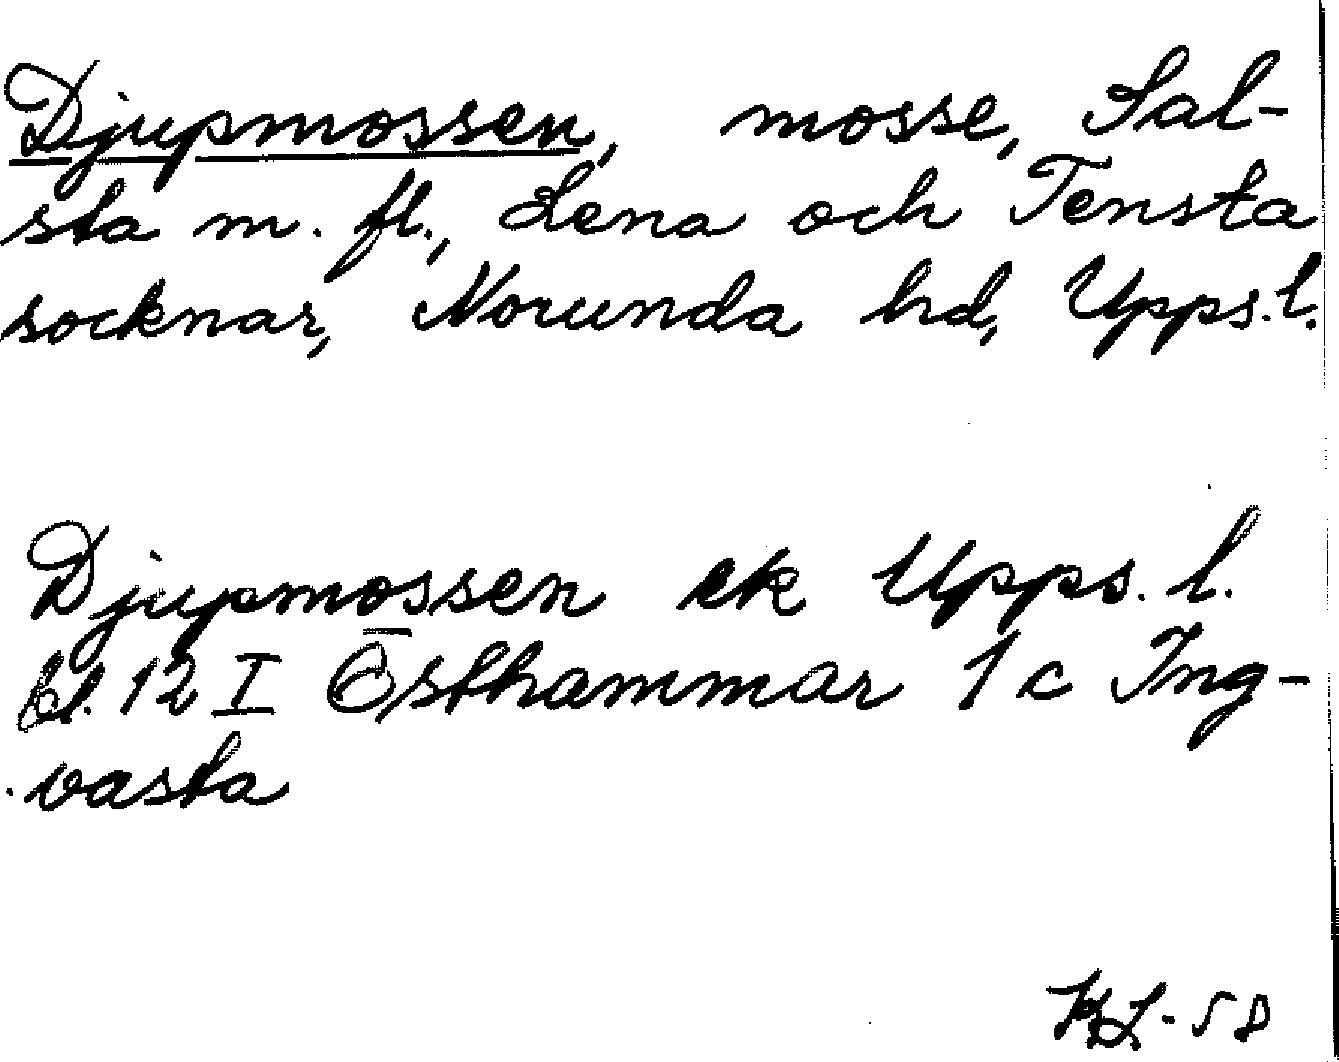 Djupmossen, mosse, Sal-
sta m. fl., Lena och Tensta
socknar, Norunda hd, Upps.l.
Djupmossen ek Upps. l.
bl. 12 I Östhammar 1 c Ing-
vasta
KL-58